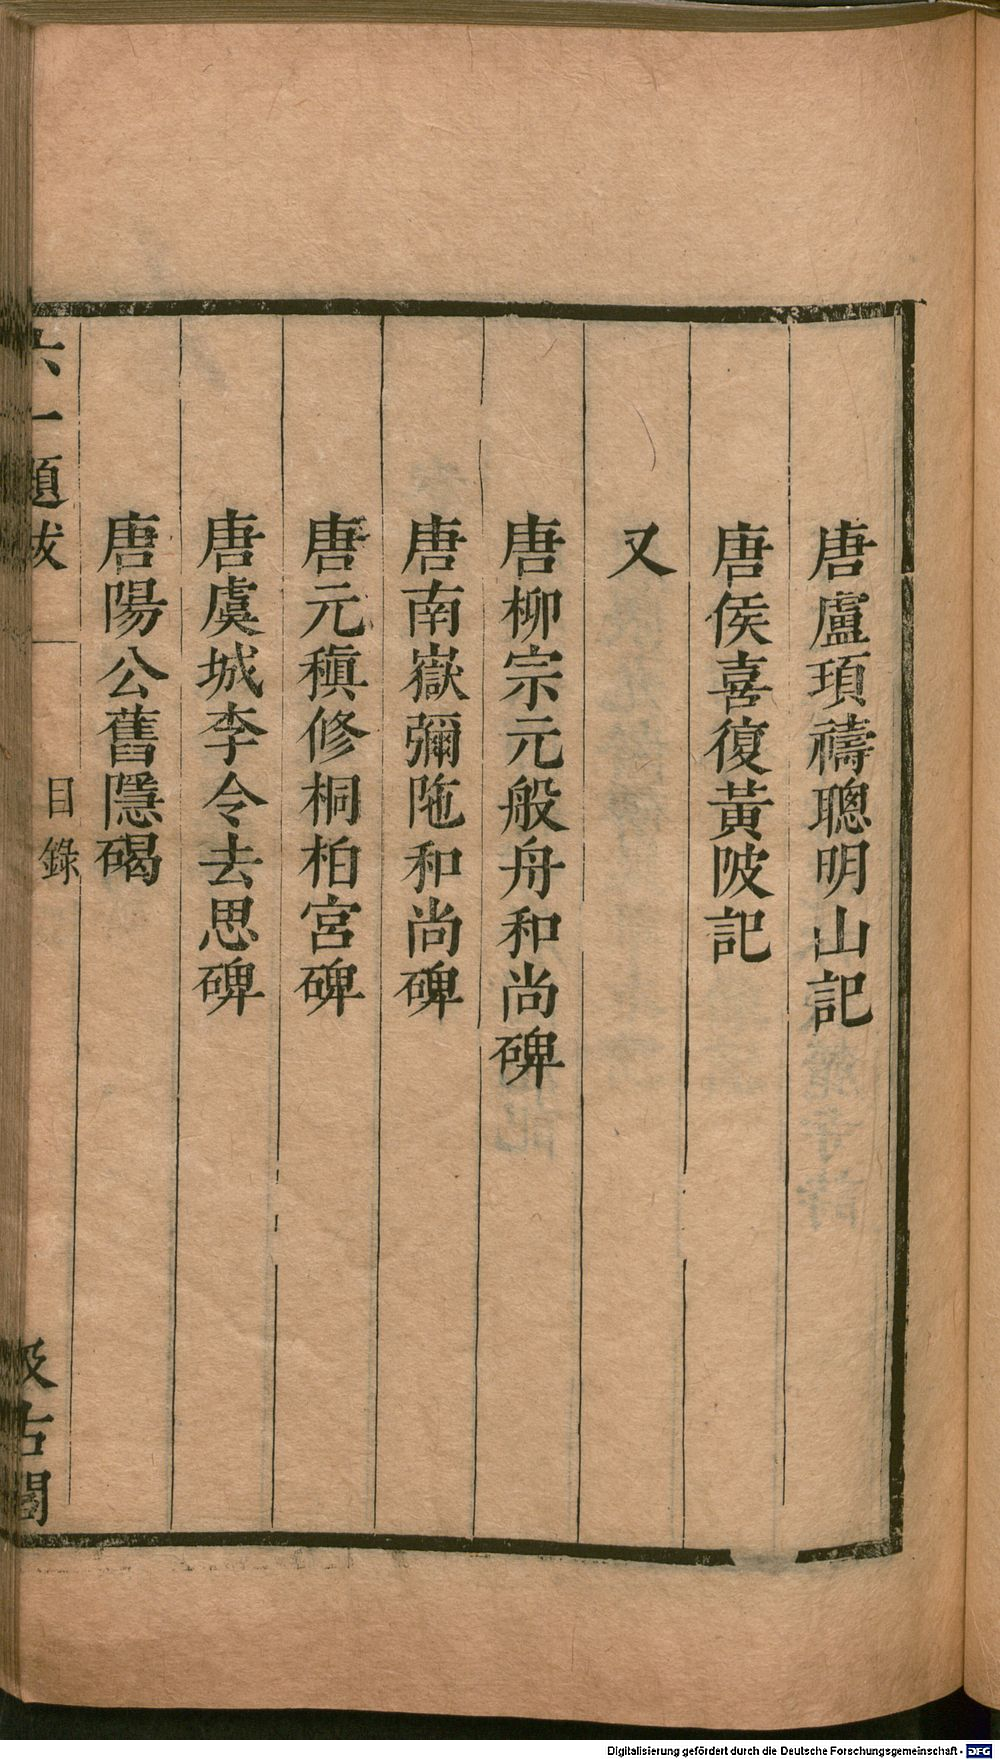 唐盧頊禱聰明山記
唐侯喜復黃陂記
又
唐柳宗元般舟和尚碑
唐南嶽彌陁和尚碑
唐元稹修桐柏宮碑
唐虞城李令去思碑
唐陽公舊隱碣
六一題跋 目錄 汲古閣
Digitalisierung gefördert durch die Deutsche Forschungsgemeinschaft - DFG